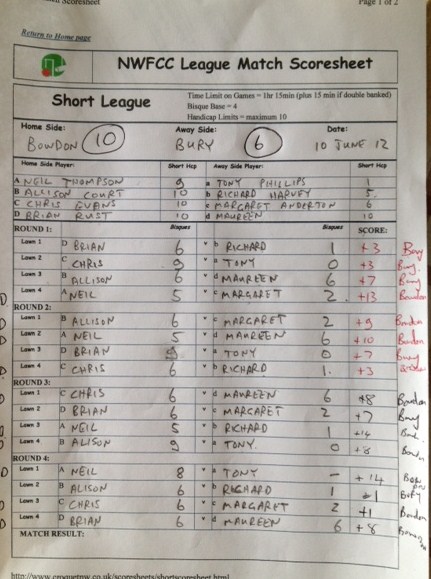 Scoresheet Page 1 of 2
Return to Home page
NWFCC League Match Scoresheet
Short League
Time Limit on Games = 1hr 15min (plus 15 min if double banked)
Bisque Base = 4
Handicap Limits = maximum 10
Home Side: Away Side: Date:
BOWDON 10 BURY 6 10 JUNE 12
Home Side Player: Short Hcp Away Side Player: Short Hcp
A NEIL THOMPSON 9 a TONY PHILLIPS 1
B ALLISON COURT 10 b RICHARD HARVEY 5
C CHRIS EVANS 10 c MARGARET ANDERTON 6
D BRIAN RUST 10 d MAUREEN 10
ROUND 1: Bisques Bisques SCORE:
Lawn 1 D BRIAN 6 v b RICHARD 1 +3 Bury
Lawn 2 C CHRIS 9 v a TONY 0 +3 Bury.
Lawn 3 B ALLISON 6 v d MAUREEN 6 +7 Bury
Lawn 4 A NEIL 5 v c MARGARET 2 +13 Bowdon
ROUND 2:
Lawn 1 B ALLISON 6 v c MARGARET 2 +9 Bowdon
Lawn 2 A NEIL 5 v d MAUREEN 6 +10 Bowdon
Lawn 3 D BRIAN 9 v a TONY 0 +7 Bury
Lawn 4 C CHRIS 6 v b RICHARD 1. +3
ROUND 3:
Lawn 1 C CHRIS 6 v d MAUREEN 6 +8 Bowdon
Lawn 2 D BRIAN 6 v c MARGARET 2 +7 Bury
Lawn 3 A NEIL 5 v b RICHARD 1 +14
Lawn 4 B ALISON 9 v a TONY. 0 +8
ROUND 4:
Lawn 1 A NEIL 8 v a TONY - +14
Lawn 2 B ALISON 6 v b RICHARD 1 +1 BURY
Lawn 3 C CHRIS 6 v c MARGARET 2 +1 Bowdon
Lawn 4 D BRIAN 6 v d MAUREEN 6 +8
MATCH RESULT:
http://www.croquetnw.co.uk/scoresheets/shortscoresheet.html